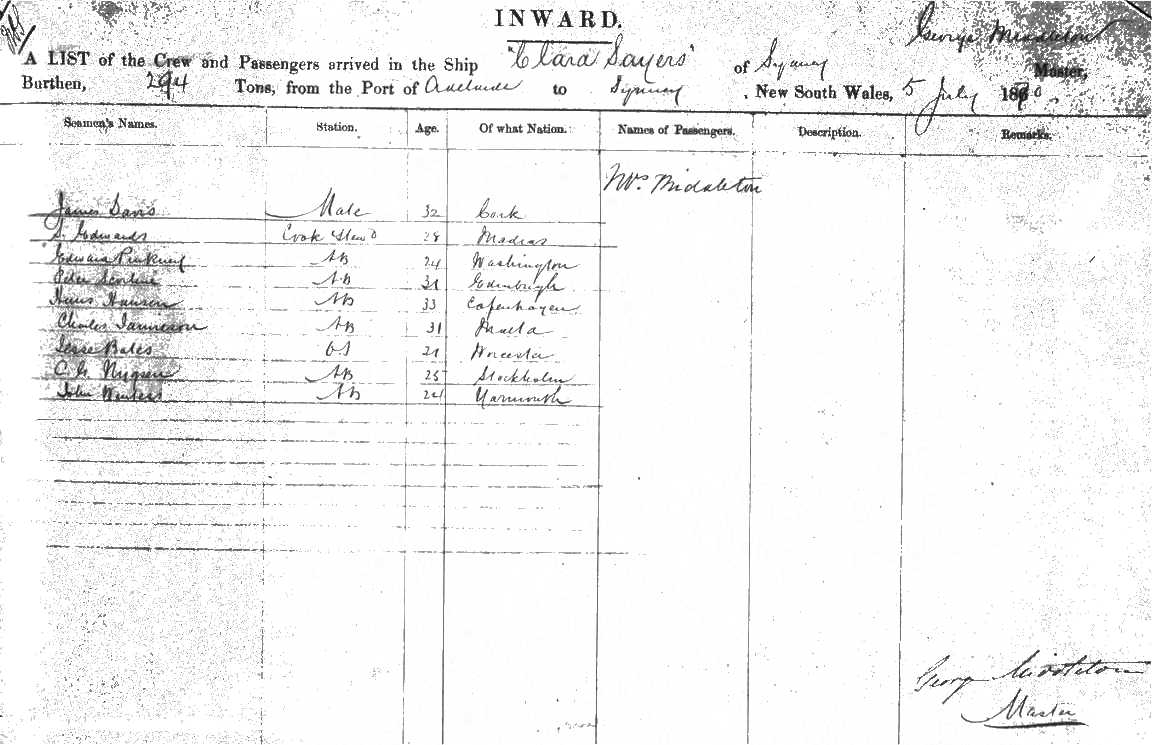 INWARD.
George Middleton
A LIST of the Crew and Passengers arrived in the Ship "Clara Sayers" of Sydney Master,
Burthen, 294 Tons, from the Port of Adelaide to Sydney, New South Wales, 5 July 1880.
Seamen's Names. Station. Age. Of what Nation. Names of Passengers. Description. Remarks.
Mrs. Middleton
James Davis Mate 32 Cork
S. Edwards Cook Stewd 28 Madras
Edward AB 24 Washington
Peter AB Edinburgh
Hans Hansen AB 33 Copenhagen
Charles Jamieson AB 31 Malta
Jesse Bates OS 21 Worcester
C. G. AB 25 Stockholm
John AB Yarmouth
George Middleton
Master